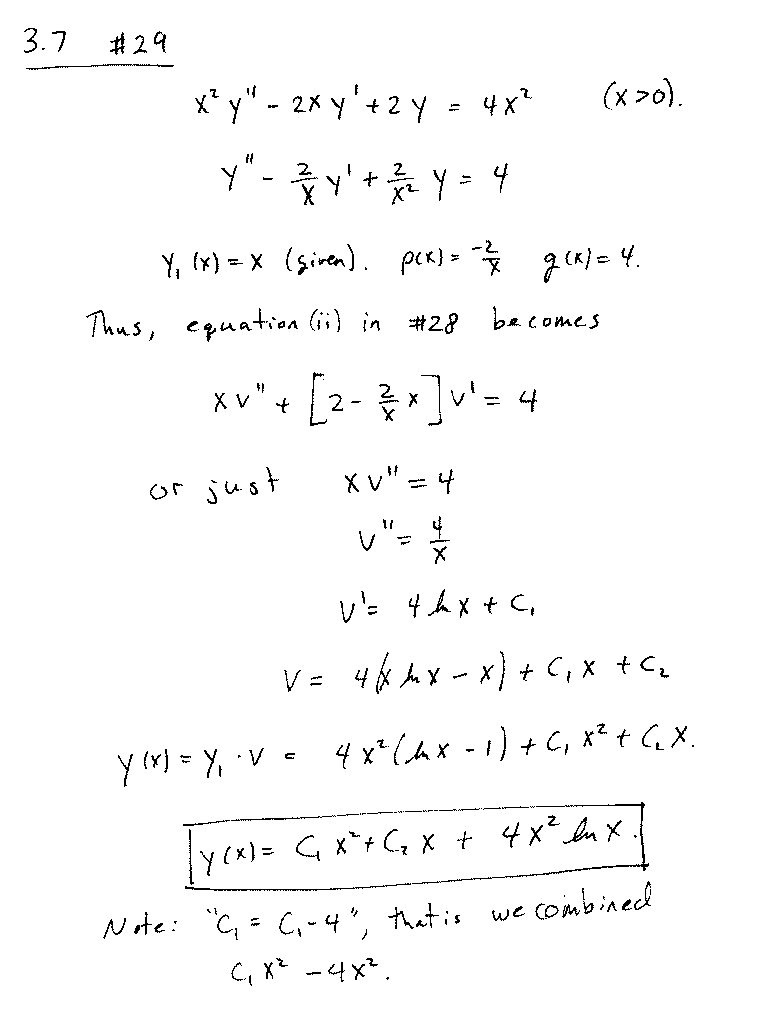 3.7 #29
x² y'' - 2x y' + 2y = 4x² (x>0).
y'' - 2/x y' + 2/x² y = 4
y₁(x) = x (given). p(x) = -2/x g(x) = 4.
Thus, equation (ii) in #28 becomes
x v'' + [2 - 2/x x] v' = 4
or just x v'' = 4
v'' = 4/x
v' = 4 ln x + C₁
v = 4(x ln x - x) + C₁ x + C₂
y(x) = y₁ · v = 4x²(ln x - 1) + C₁ x² + C₂ x.
y(x) = C₁ x² + C₂ x + 4x² ln x.
Note: "C₁ = C₁-4", that is we combined
C₁ x² - 4x².